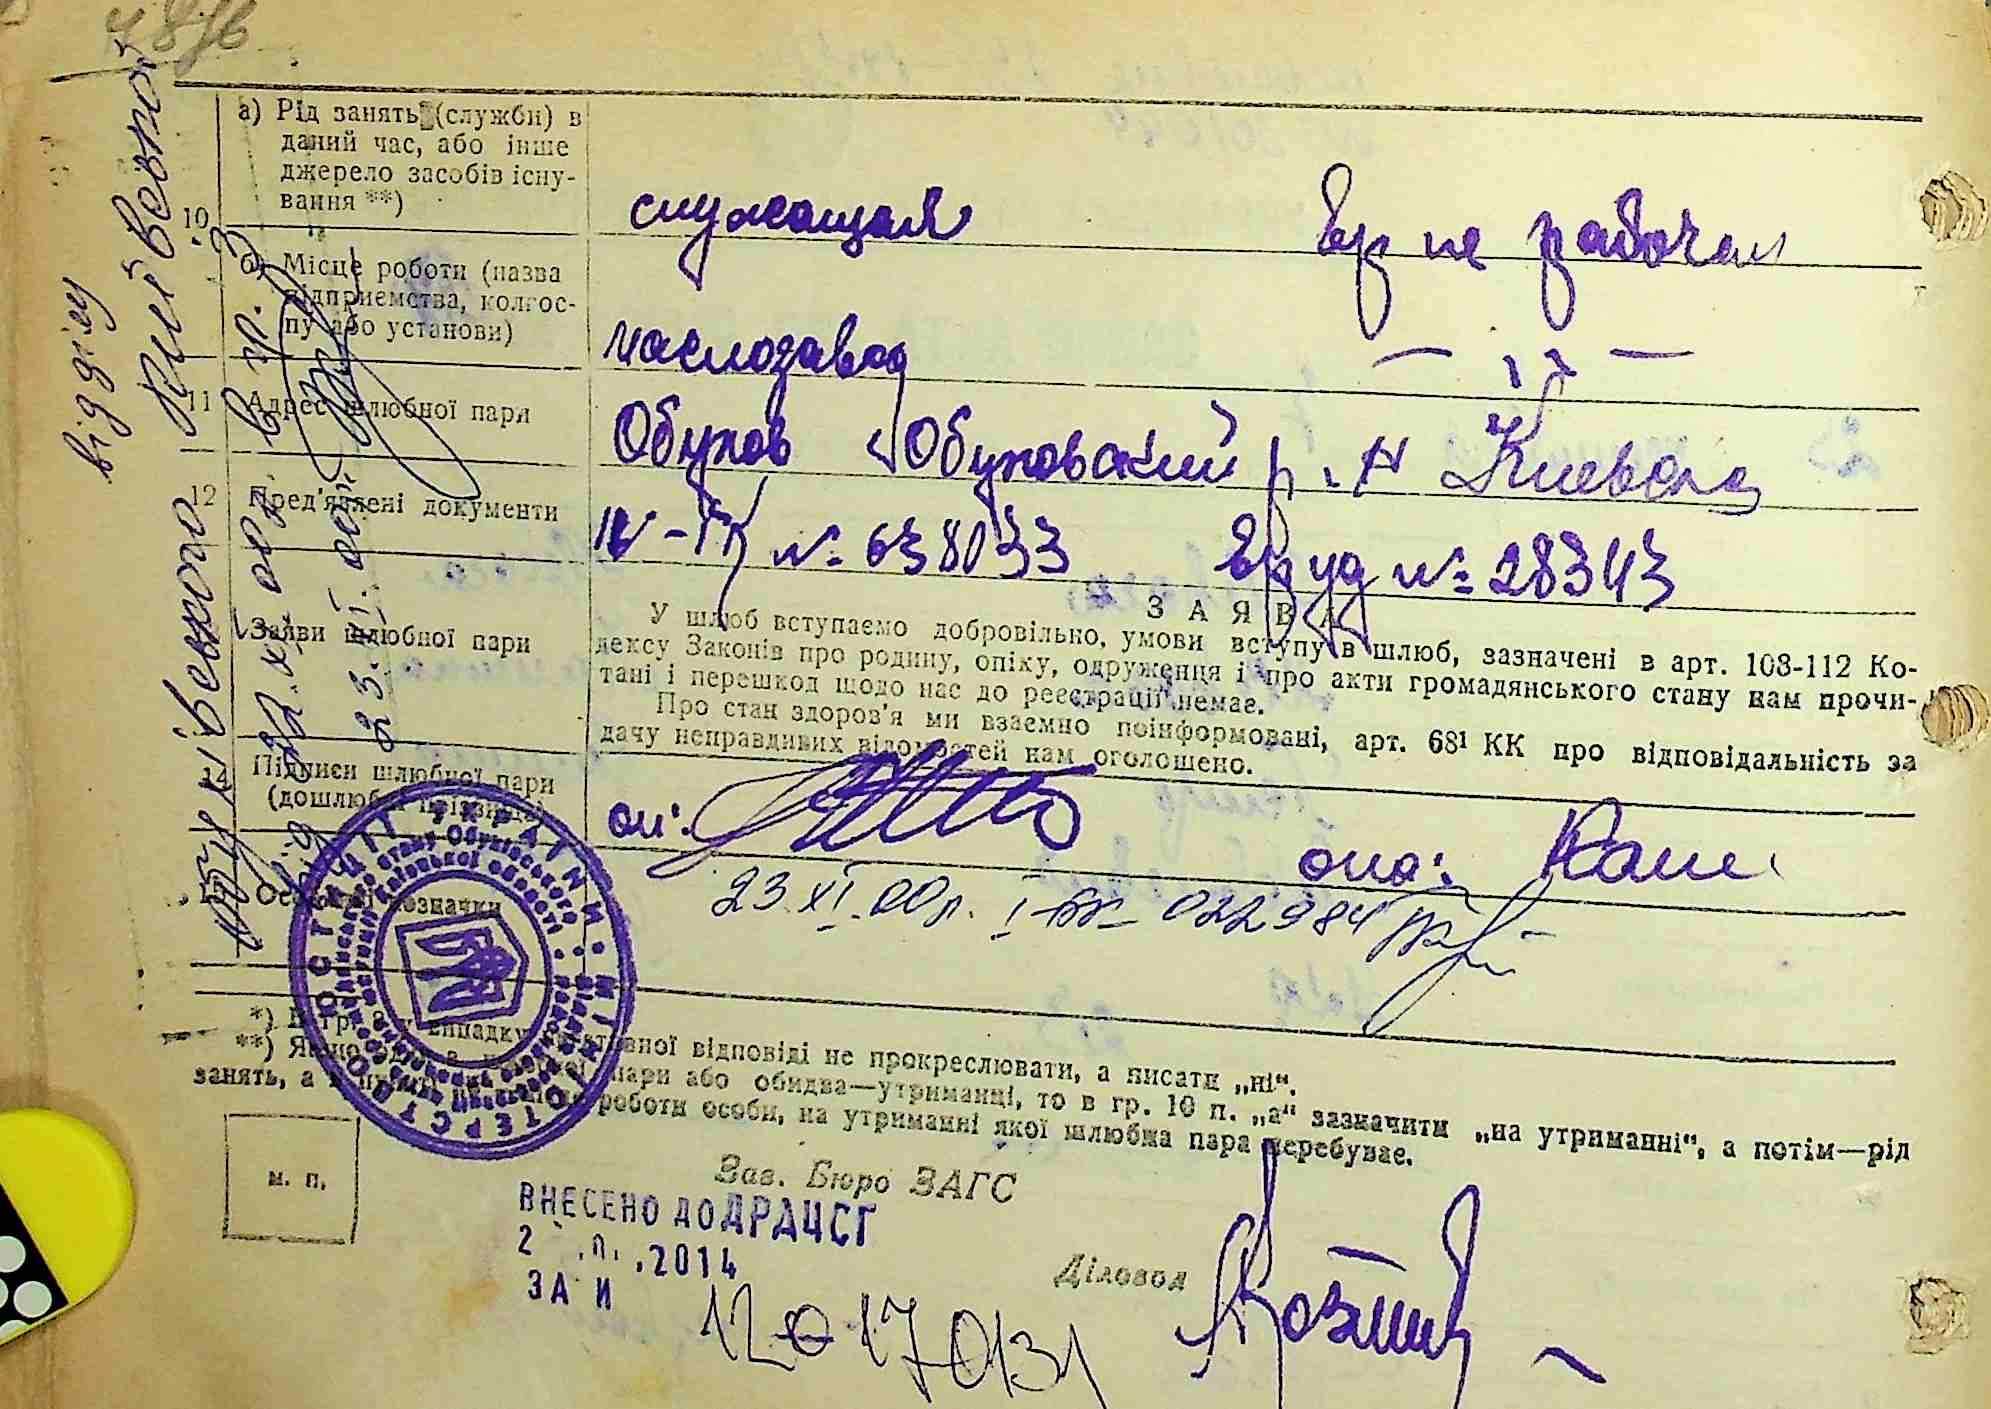 а) Рід занять (служби) в
даний час, або інше
джерело засобів існу-
вання **)
служащая
не рабочая
10
б) Місце роботи (назва
підприємства, колгос-
пу або установи)
маслозавод
— ıı —
11 Адрес шлюбної пари
Обухов Обуховский р-н Киевск
12 Пред'явлені документи
№ 638033
№ 28343
Заяви шлюбної пари
ЗАЯВА
У шлюб вступаємо добровільно, умови вступу в шлюб, зазначені в арт. 108-112 Ко-
дексу Законів про родину, опіку, одруження і про акти громадянського стану нам прочи-
тані і перешкод щодо нас до реєстрації немає.
Про стан здоров'я ми взаємно поінформовані, арт. 68¹ КК про відповідальність за
дачу неправдивих відомостей нам оголошено.
14 Підписи шлюбної пари
(дошлюбні прізвища)
он:
она:
Особливі позначки
23.XI.00р. І-БК 022984
*) В гр. 8 у випадку негативної відповіді не прокреслювати, а писати „ні“.
**) Якщо пари або обидва—утриманці, то в гр. 10 п. „а“ зазначити „на утриманні“, а потім—рід
занять, а роботи особи, на утриманні якої шлюбна пара перебуває.
м. п.
Зав. Бюро ЗАГС
ВНЕСЕНО ДО ДРАЦСГ
2014
Діловод
відділу
Обухівського
Київської
23.XI.00р.
МІНІСТЕРСТВО ЮСТИЦІЇ УКРАЇНИ